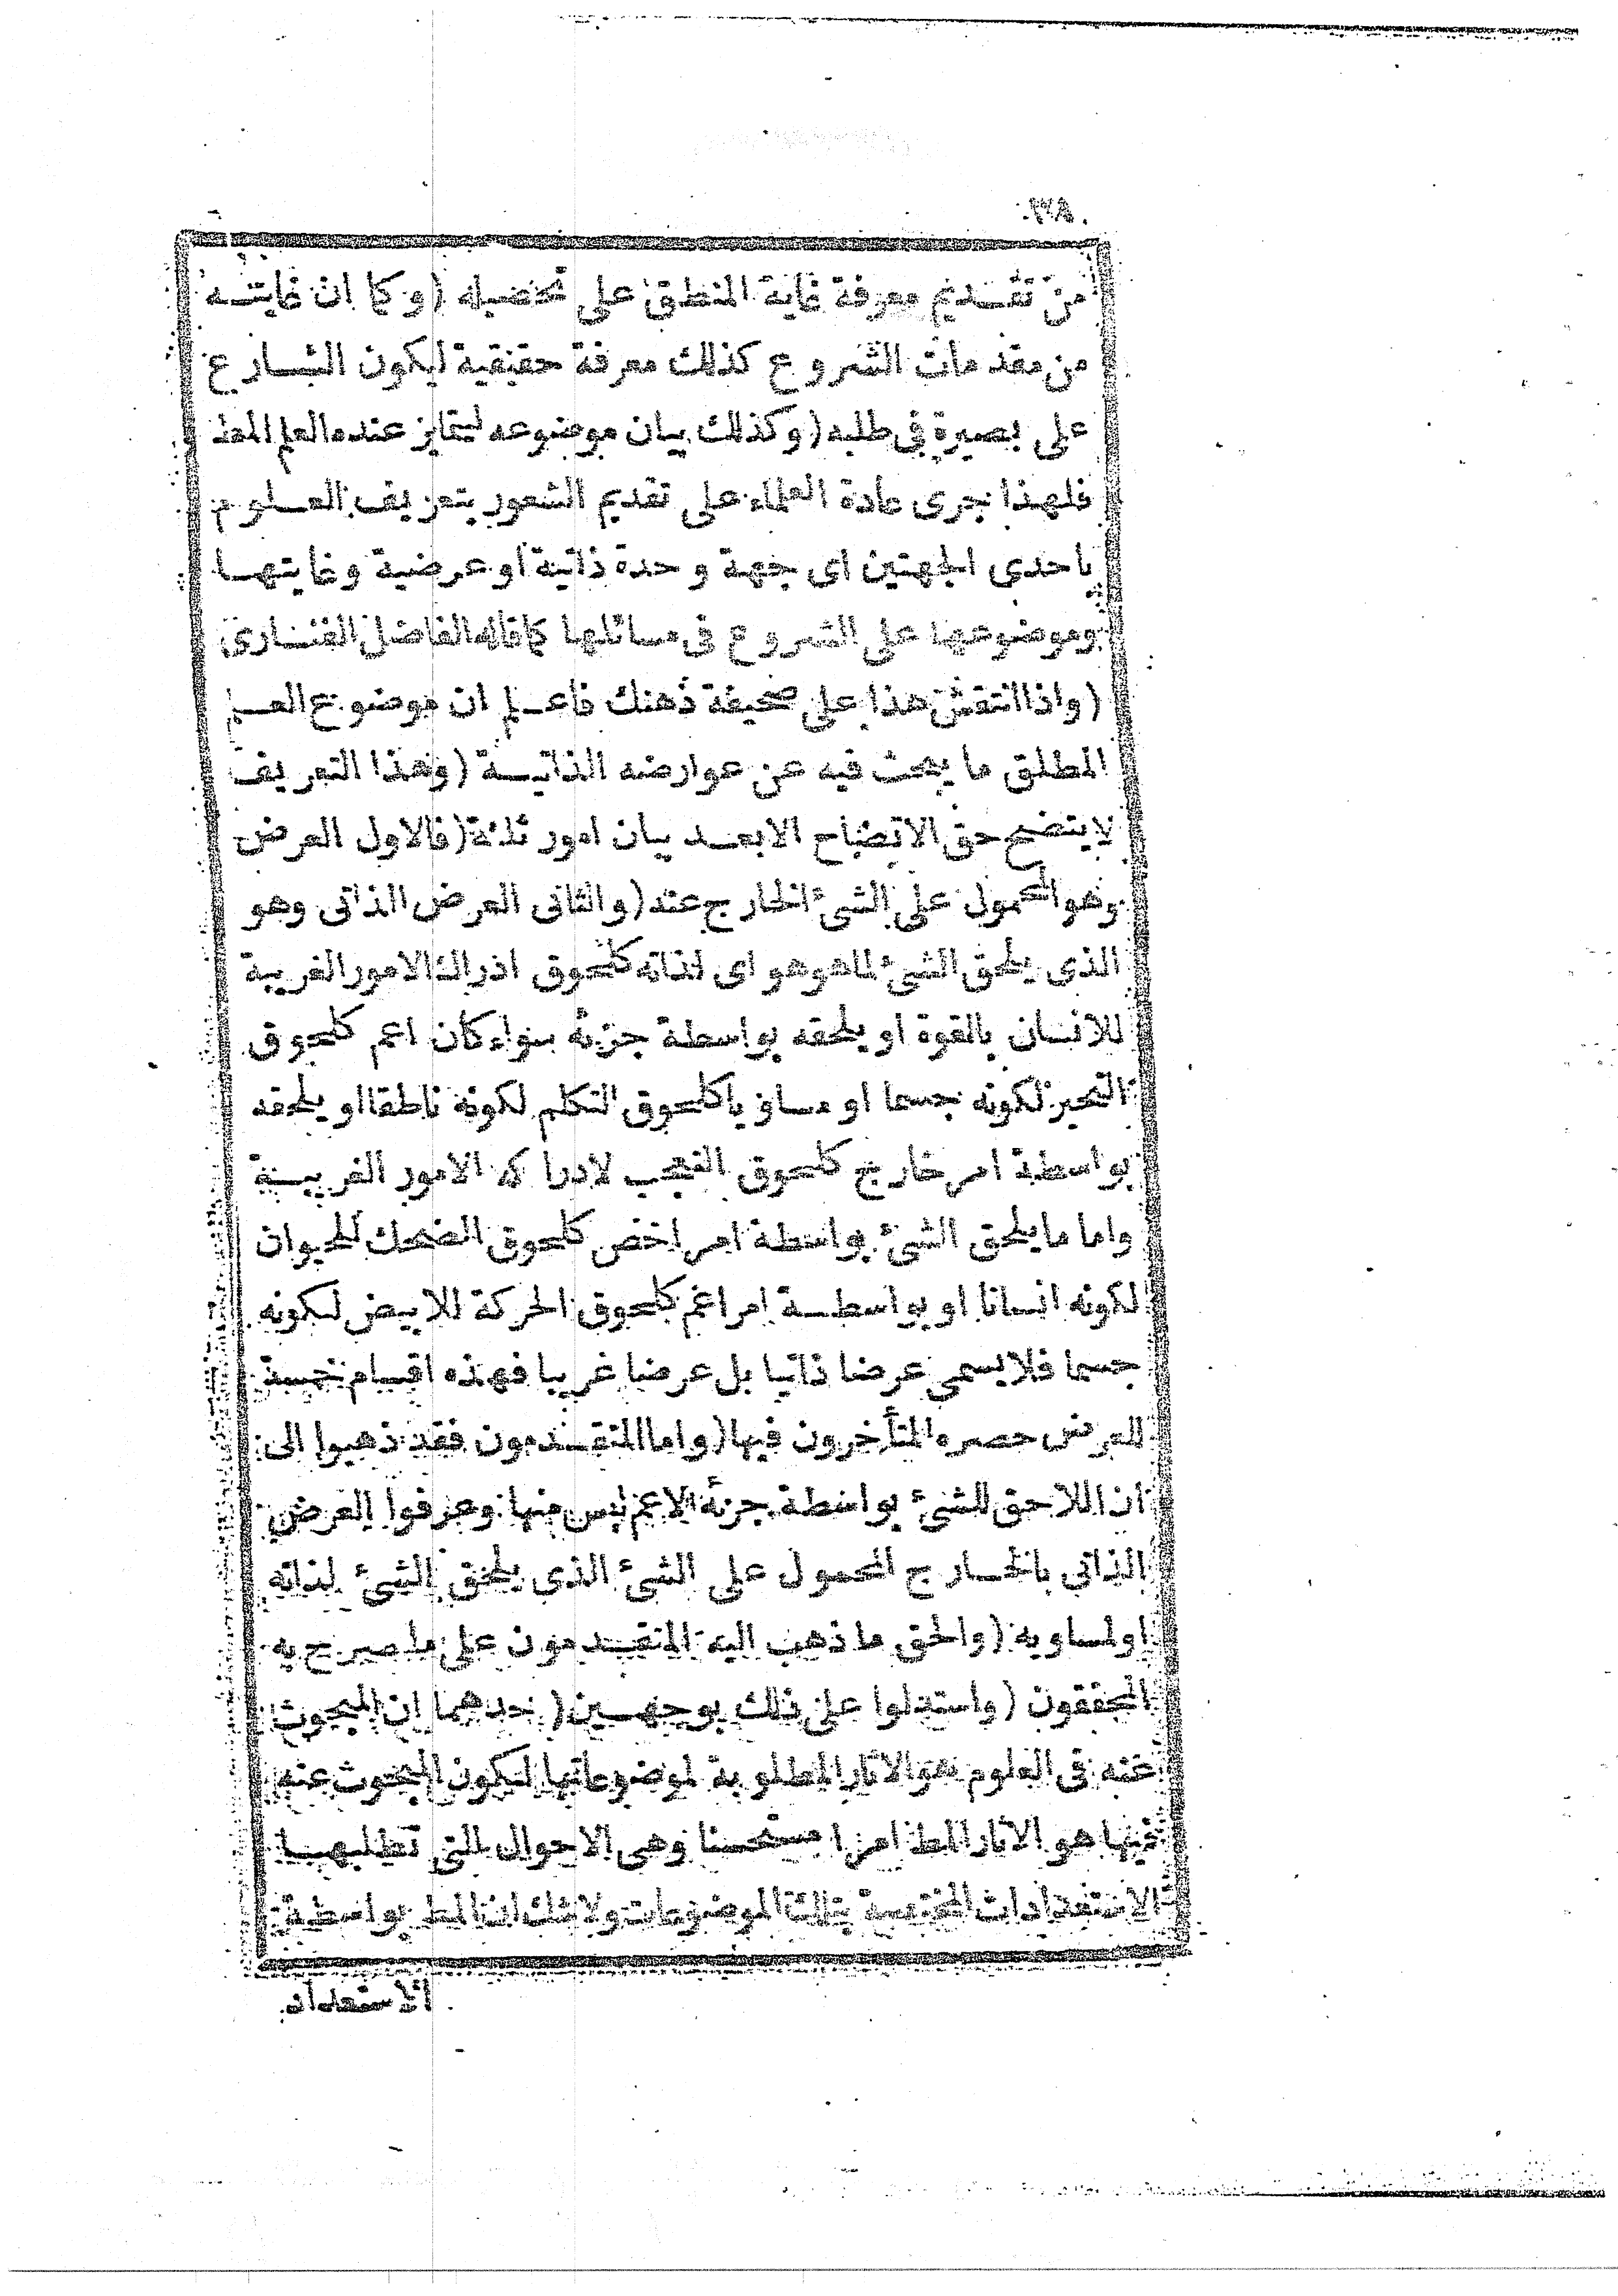 من تقديم معرفة غاية المنطق على تحصيله (وكما ان غايته
من مقدمات الشروع كذلك معرفة حقيقية ليكون الشارع
على بصيرة فى طلبه (وكذلك بيان موضوعه ليتمايز عنده العلم المط
فلهذا جرى عادة العلماء على تقديم الشعور بتعريف العلوم
باحدى الجهتين اى جهة وحدة ذاتية او عرضية وغايتها
وموضوعها على الشروع فى مسائلها كما قاله الفاضل الفنارى
(واذا انتقش هذا على صحيفة ذهنك فاعلم ان موضوع العلم
المطلق ما يبحث فيه عن عوارضه الذاتية (وهذا التعريف
لا يتضح حق الاتضاح الا بعد بيان امور ثلثة (فالاول العرض
وهو المحمول على الشئ الخارج عنه (والثانى العرض الذاتى وهو
الذى يلحق الشئ لما هو هو اى لذاته كلحوق ادراك الامور الغريبة
للانسان بالقوة او يلحقه بواسطة جزئه سواء كان اعم كلحوق
التحيز لكونه جسما او مساويا كلحوق التكلم لكونه ناطقا او يلحقه
بواسطة امر خارج كلحوق التعجب لادراكه الامور الغريبة
واما ما يلحق الشئ بواسطة امر اخص كلحوق الضحك للحيوان
لكونه انسانا او بواسطة امر اعم كلحوق الحركة للابيض لكونه
جسما فلا يسمى عرضا ذاتيا بل عرضا غريبا فهذه اقسام خمسة
للعرض حصره المتأخرون فيها (واما المتقدمون فقد ذهبوا الى
ان اللاحق للشئ بواسطة جزئه الاعم ليس منها وعرفوا العرض
الذاتى بالخارج المحمول على الشئ الذى يلحق الشئ لذاته
او لمساويه (والحق ما ذهب اليه المتقدمون على ما صرح به
المحققون (واستدلوا على ذلك بوجهين (احدهما ان المبحوث
عنه فى العلوم هو الاثار المطلوبة لموضوعاتها ليكون المبحوث عنه
فيها هو الاثار المط امرا مستحسنا وهى الاحوال التى تطلبها
الاستعدادات المختصة بتلك الموضوعات ولا شك ان المط بواسطة
الاستعدادات